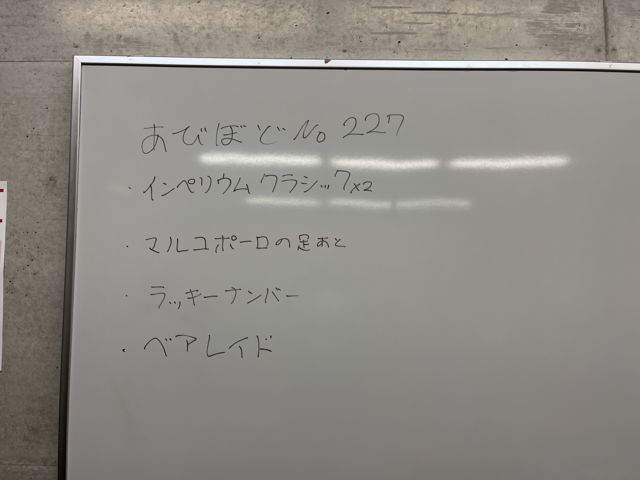 あびぼど No 227
・インペリウム クラシック x2
・マルコポーロの足あと
・ラッキーナンバー
・ベアレイド